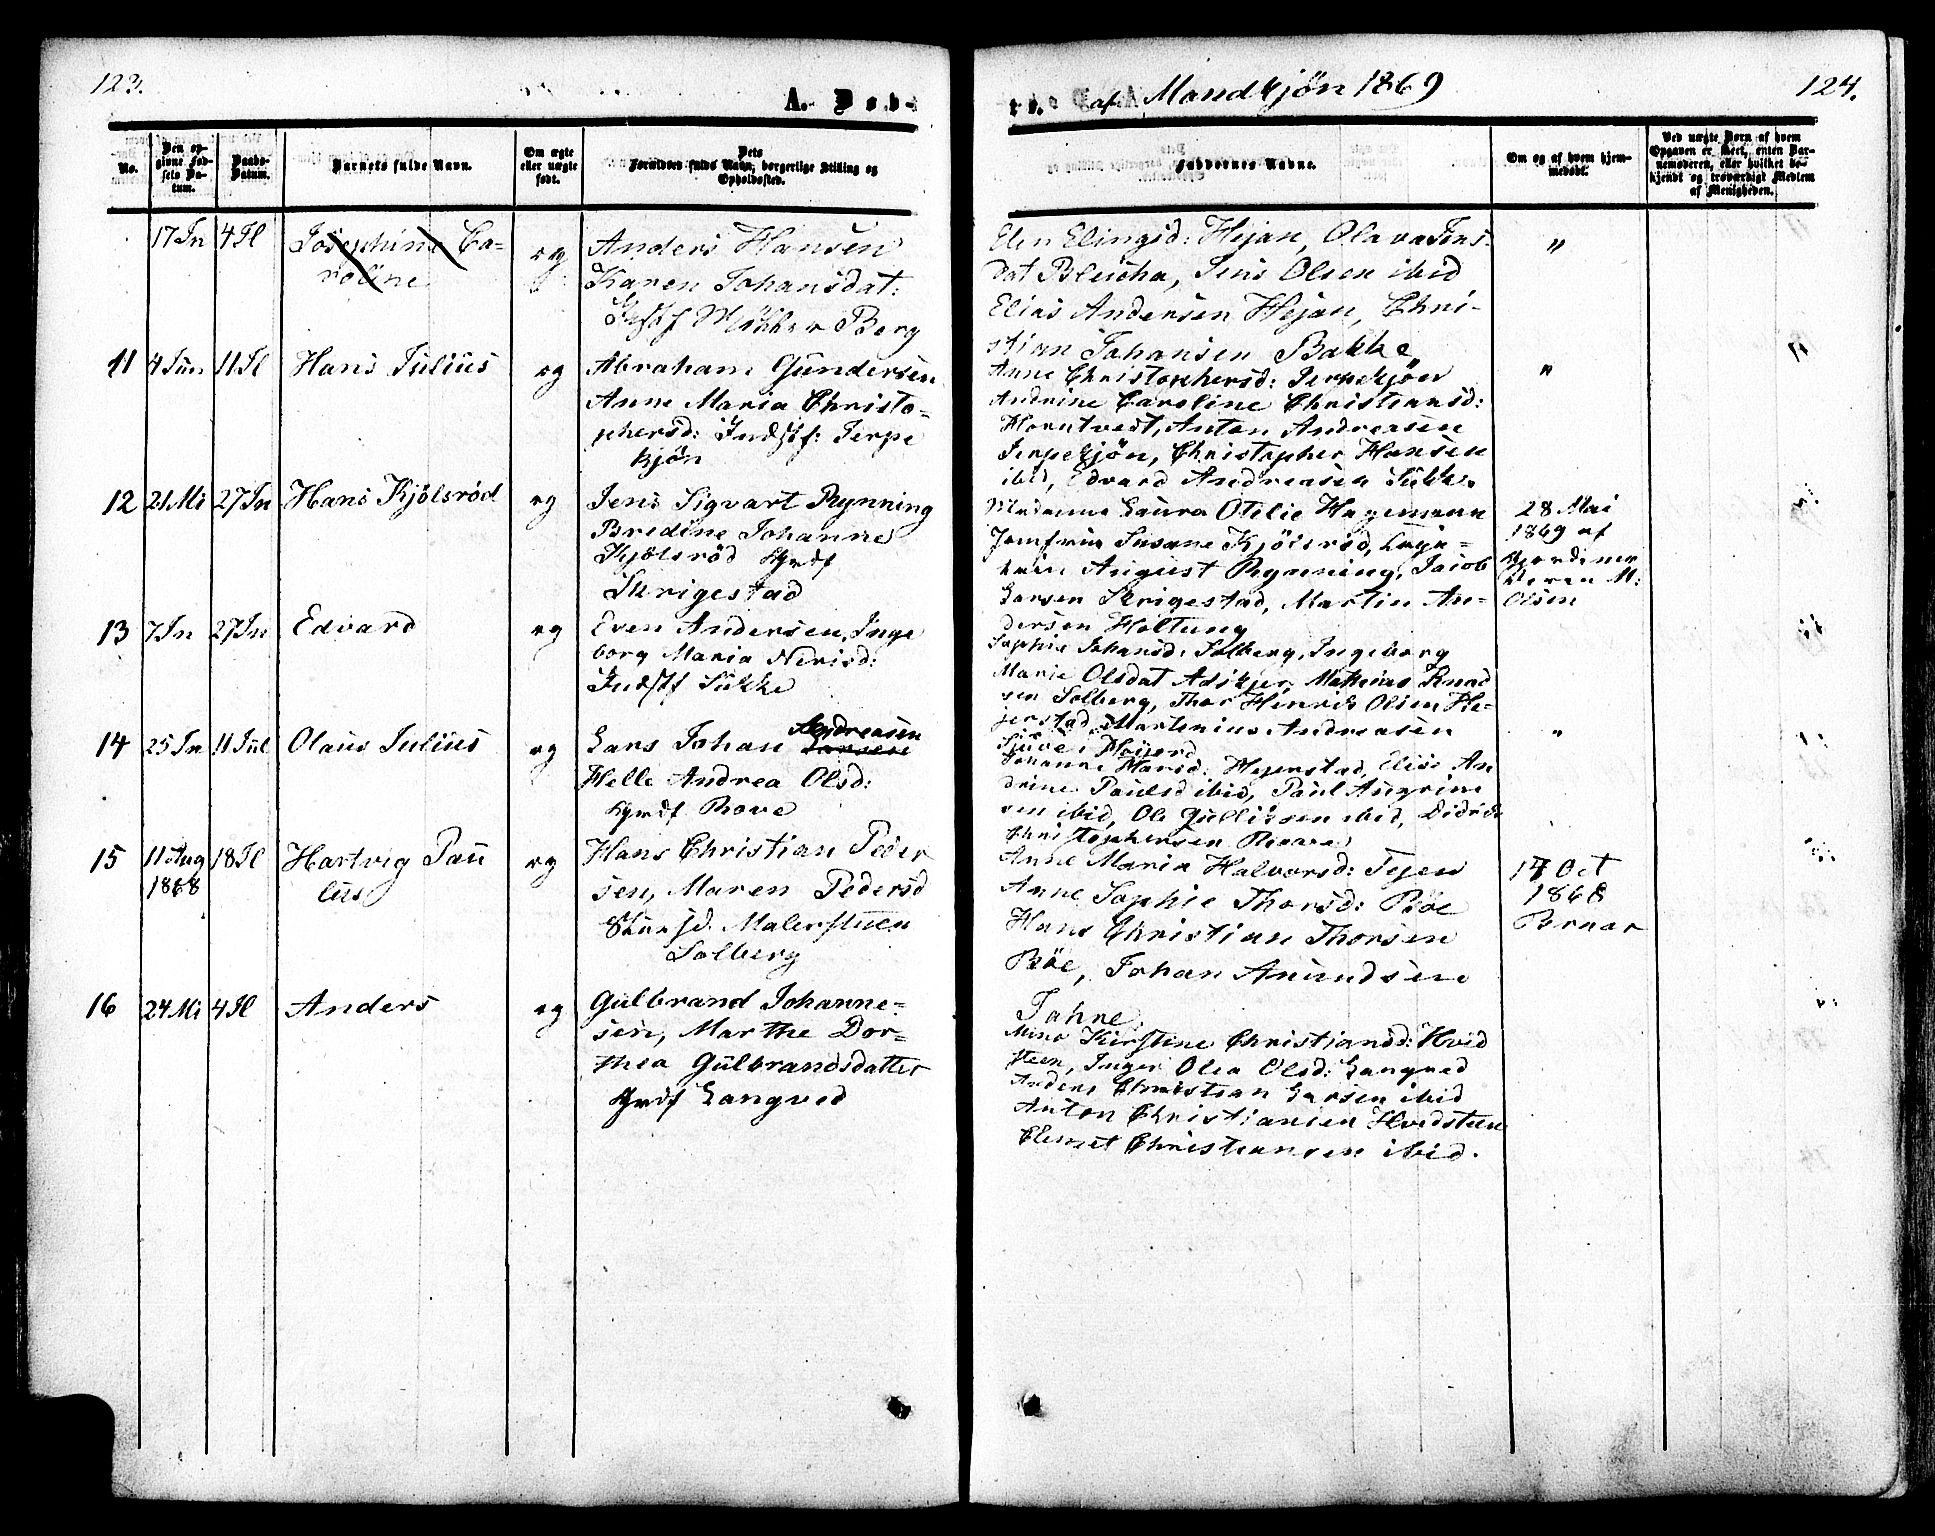 123.
A. Døb-
te. af Mandkjøn 1869
124.
No.
Den opgivne Fødsels Datum.
Daabs-Datum.
Barnets fulde Navn.
Om ægte eller uægte født.
Dets Forældres fulde Navn, borgerlige Stilling og Opholdssted.
Faddernes Navne.
Om og af hvem hjemmedøbt.
Ved uægte Børn af hvem Opgaven er skeet, enten Barnemoderen, eller hvilket bekjendt og troværdigt Medlem af Menigheden.
17 Jn 4 Jl Josephine Ca-
roline
æg
Anders Hansen
Karen Johansdat:
Berg
Elen Elingsd: Hejan, Olava Jens-
dat Bleicha, Jens Olsen ibid
Elias Andersen Hejan, Chri-
stian Johansen Bakke
"
11 4 Jun 11 Jl Hans Julius
æg
Abraham Gundersen
Anne Maria Christo-
phersd: Indstf: Jerpe
kjøn
Anne Christophersd: Jerpekjøn
Andrine Caroline Christiansd:
Horntvedt, Anton Andreasen
Jerpekjøn, Christopher Hansen
ibid, Edvard Andreasen Sukke
"
12 21 Mi 27 Jn Hans Kjølsrød
æg
Jens Sigvart Rynning
Bredine Johanne
Kjølsrød Grdf
Skrigestad
Madame Laura Otilie Hagemann
Jomfru Susane Kjølsrød,
August Rynning, Jacob
Larsen Skrigestad, Martin An-
dersen Holtung
28 Mai
1869 af
Jordemor
Maren M:
Olsen
13 7 Jn 27 Jn Edvard
æg
Even Andersen, Inge
borg Maria Nerisd:
Indstf Sukke
Sophie Johansd: Solberg, Ingeborg
Marie Olsdat Adskjer, Mathias Knud
sen Solberg, Thor Hinrik Olsen He-
jerstad, Martinius Andreasen
14 25 Jn 11 Jul Olaus Julius
æg
Lars Johan Larsen
Andreasen
Helle Andrea Olsd:
Grdf Rove
Johanne Hansd: Hejerstad, Elise An
drine Paulsd ibid, Paul Angrim
sen ibid, Ole Gulliksen ibid, Didrik
Christophersen
"
15 11 Aug
1868
18 Jl Hartvig Pau
lus
æg
Hans Christian Peder
sen, Maren Pedersd
Malerstuen
Solberg
Anne Maria Halvorsd: Tejen
Anne Sophie Thorsd: Bøe
Hans Christian Thorsen
Bøe, Johan Amundsen
Tahne
17 Oct
1868
16 24 Mi 4 Jl Anders
æg
Gulbrand Johanne-
sen, Marthe Dor-
thea Gulbrandsdatter
Grdf Langved
Mina Kirstine Christiansd: Hvid
steen, Inger Olea Olsd: Langved
Anders Christian Larsen ibid
Anton Christiansen Hvidsteen
Clemet Christiansen ibid.